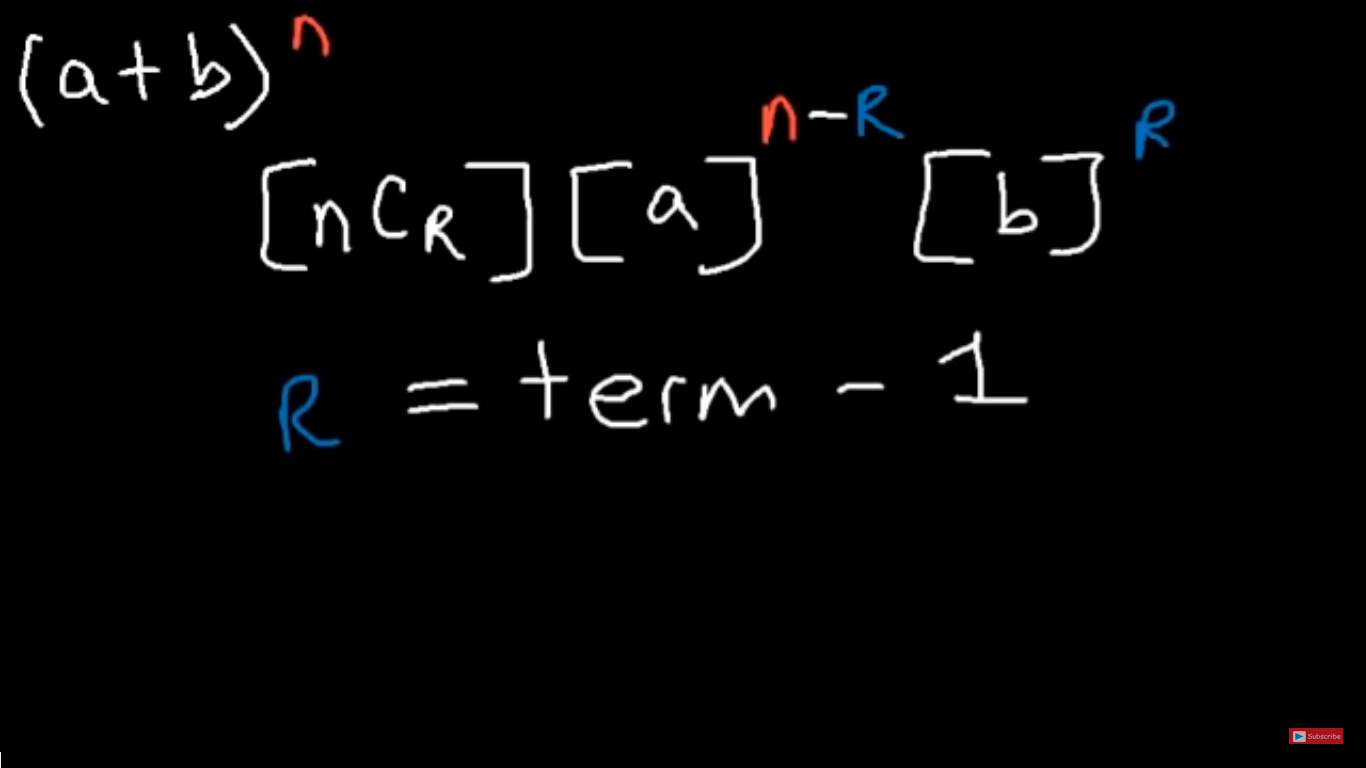 (a+b)^n
[nCR][a]^n-R [b]^R
R = term - 1
Subscribe